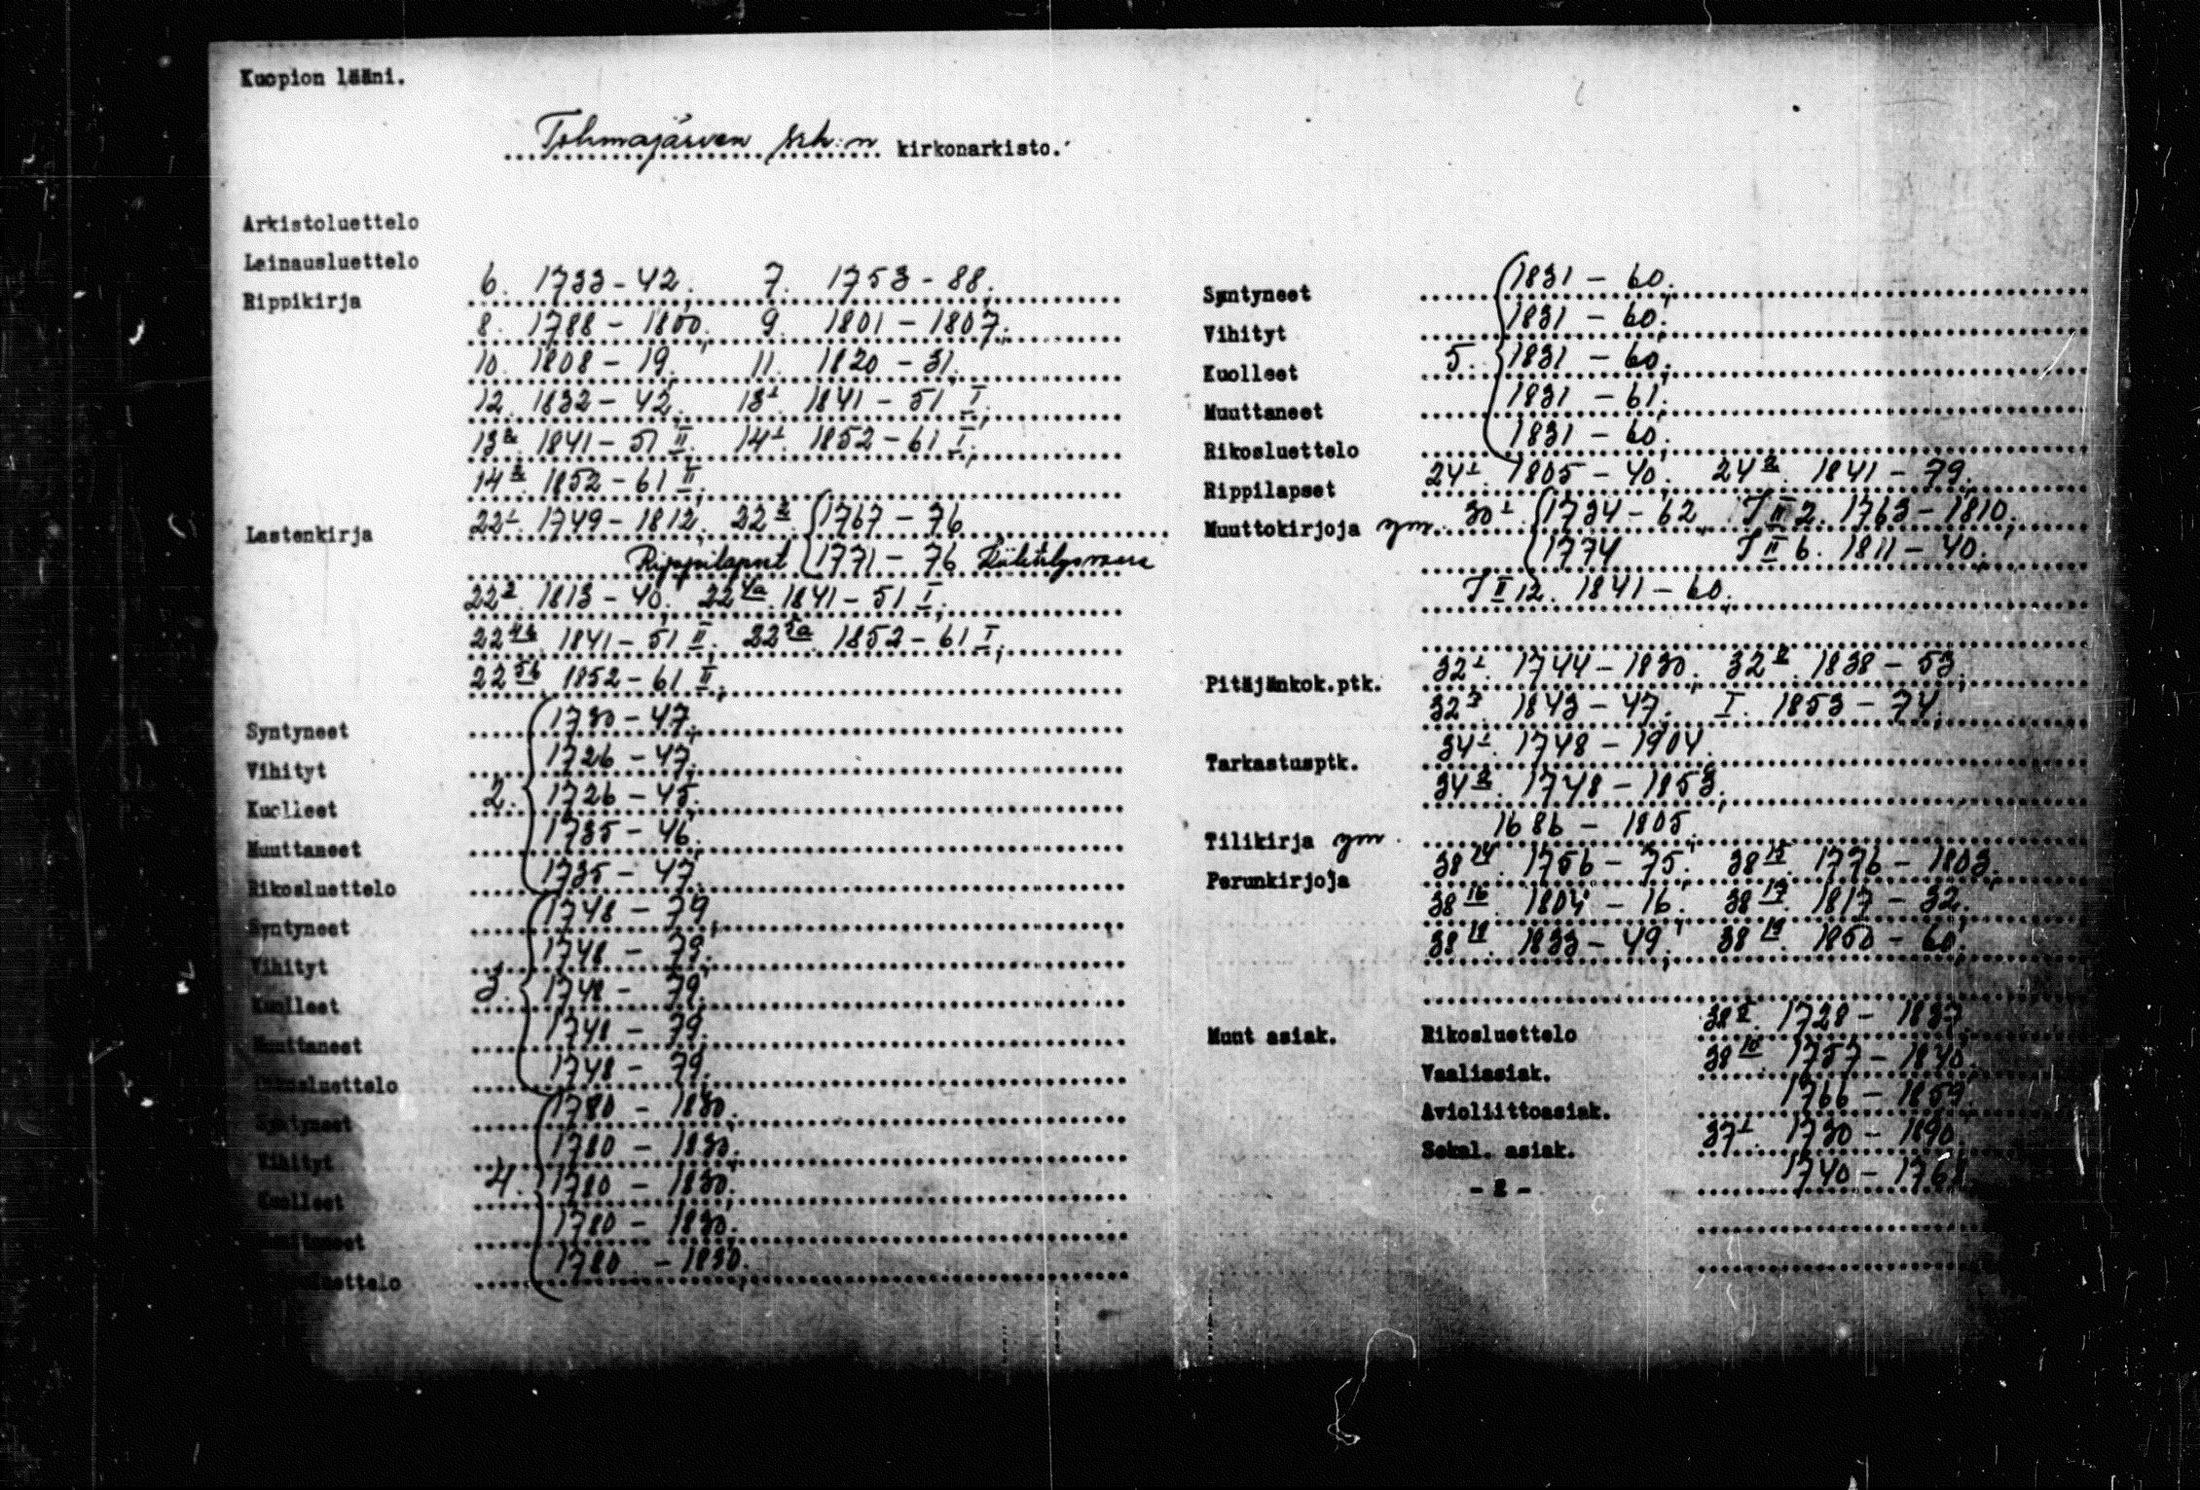 Kuopion lääni.
Tohmajärven srk:n kirkonarkisto.
Arkistoluettelo
Lainausluettelo
Rippikirja 6. 1733-42, 7. 1753-88,
8. 1788-1800, 9. 1801-1807,
10. 1808-19, 11. 1820-31,
12. 1832-42, 13¹. 1841-51 I,
13². 1841-51 II, 14¹. 1852-61 I,
14². 1852-61 II,
Lastenkirja 22¹. 1749-1812, 22². 1767-76
Rippilapset 1771-76
22³. 1813-40, 22⁴ᵃ. 1841-51 I,
22⁴ᵇ. 1841-51 II, 22⁵ᵃ. 1852-61 I,
22⁵ᵇ. 1852-61 II,
Syntyneet 1730-47,
Vihityt 1726-47,
Kuolleet 2. 1726-45,
Muuttaneet 1735-46,
Rikosluettelo 1735-47,
Syntyneet 1748-79,
Vihityt 1748-79,
Kuolleet 3. 1748-79,
Muuttaneet 1748-79,
Rikosluettelo 1748-79,
Syntyneet 1780-1830,
Vihityt 1780-1830,
Kuolleet 4. 1780-1830,
Muuttaneet 1780-1830,
Rikosluettelo 1780-1830,
Syntyneet 1831-60,
Vihityt 1831-60,
Kuolleet 5. 1831-60,
Muuttaneet 1831-61,
Rikosluettelo 1831-60,
Rippilapset 24¹. 1805-40, 24². 1841-79,
Muuttokirjoja ym. 30¹. 1734-62 I II 2. 1763-1810,
1774 I II 6. 1811-40,
I II 12. 1841-60,
Pitäjänkok.ptk. 32¹. 1744-1830, 32². 1838-53,
32³. 1843-47, I. 1853-74,
Tarkastusptk. 34¹. 1748-1904,
34². 1748-1853,
Tilikirja ym. 1686-1805,
Perunkirjoja 38¹⁴. 1756-75, 38¹⁵. 1776-1803,
38¹⁶. 1804-16, 38¹⁷. 1817-32,
38¹⁸. 1833-49, 38¹⁹. 1850-60,
Muut asiak. Rikosluettelo 1728-1837,
Vaaliasiak. 38¹⁰. 1757-1840,
Avioliittoasiak. 1766-1859,
Sekal. asiak. 37¹. 1730-1890,
1740-
- 2 -